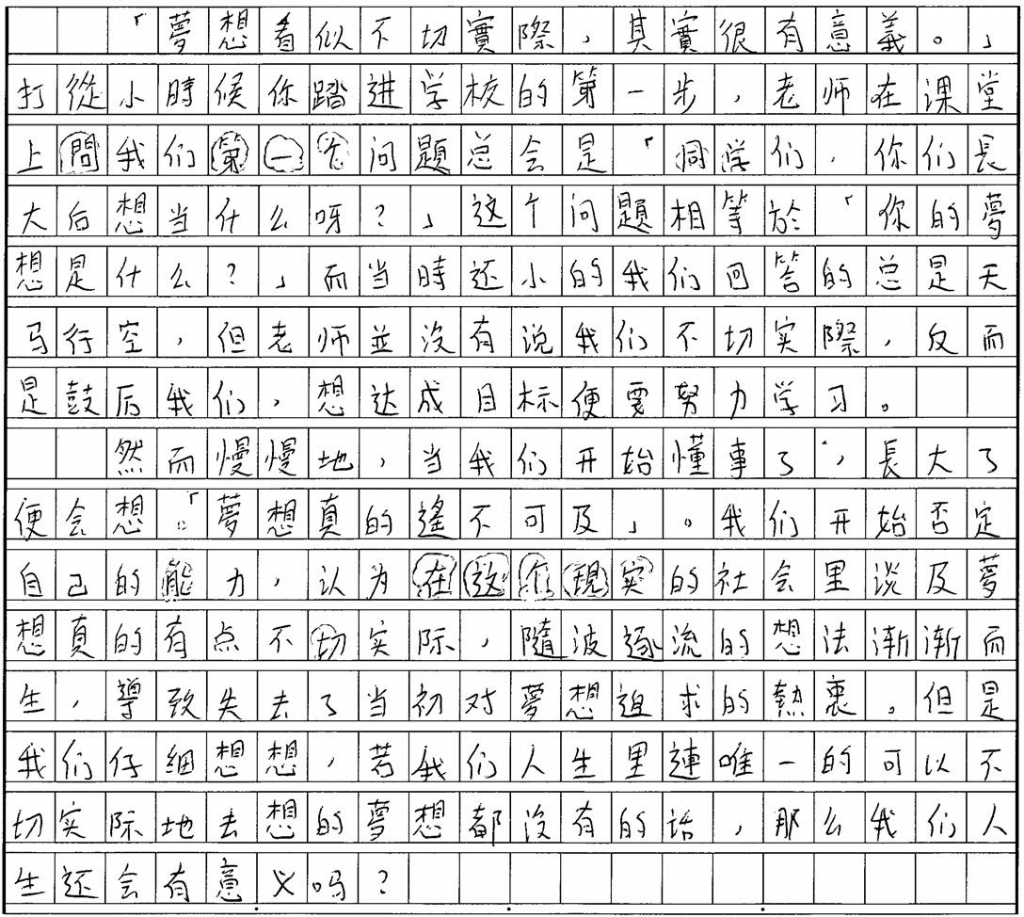 「夢想看似不切實際，其實很有意義。」
打從小時候你踏进学校的第一步，老师在课堂
上問我们第一个问題总会是「同学们，你们長
大后想当什么呀？」这个问題相等於「你的夢
想是什么？」而当時还小的我们回答的总是天
马行空，但老师並沒有说我们不切实際，反而
是鼓后我们，想达成目标便要努力学习。
然而慢慢地，当我们开始懂事了，長大了
便会想：「夢想真的遙不可及」。我们开始否定
自己的能力，认为在这个現实的社会里談及夢
想真的有点不切实际，隨波逐流的想法漸漸而
生，導致失去了当初对夢想追求的熱衷。但是
我们仔細想想，若我们人生里連唯一的可以不
切实际地去想的夢想都沒有的话，那么我们人
生还会有意义吗？